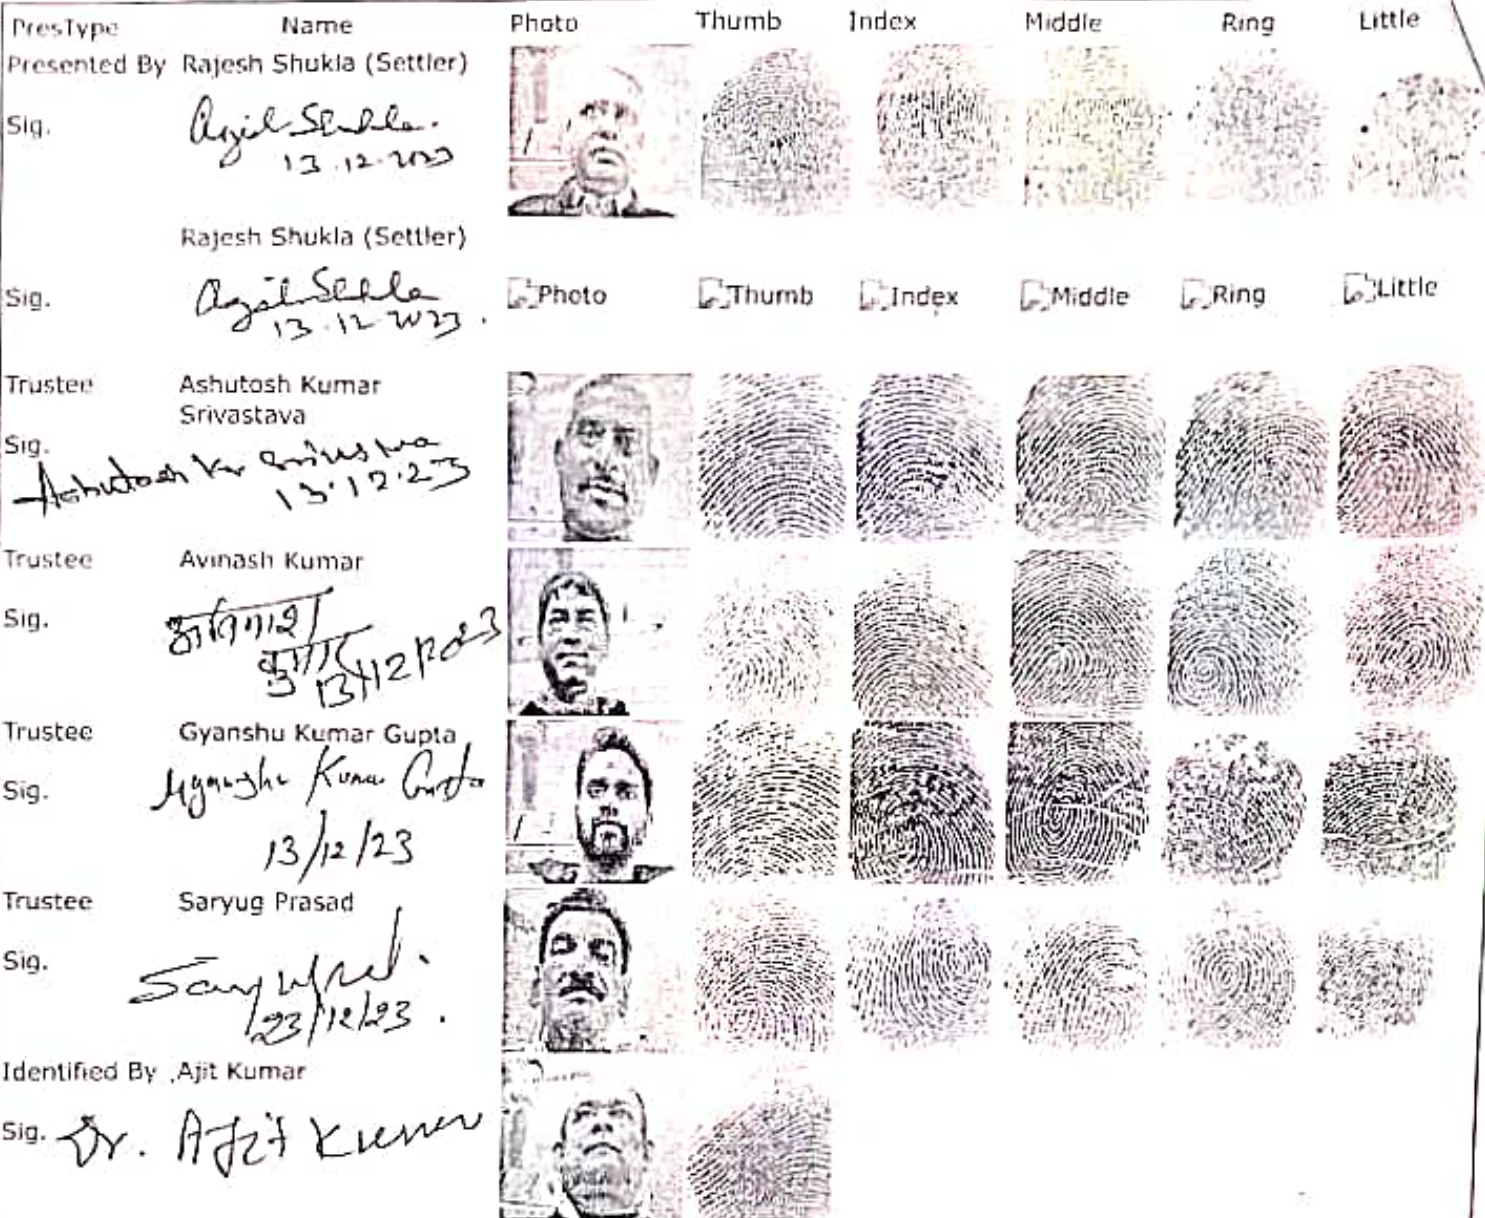 PresType Name Photo Thumb Index Middle Ring Little
Presented By Rajesh Shukla (Settler)
Sig.
13.12.2023
Rajesh Shukla (Settler)
Sig. Photo Thumb Index Middle Ring Little
13.12.2023.
Trustee Ashutosh Kumar
Srivastava
Sig.
Ashutosh Kr
13.12.23
Trustee Avinash Kumar
Sig. अविनाश
कुमार
13/12/2023
Trustee Gyanshu Kumar Gupta
Sig. Gyanshu Kumar Gupta
13/12/23
Trustee Saryug Prasad
Sig.
23/12/23.
Identified By Ajit Kumar
Sig. Dr. Ajit Kumar